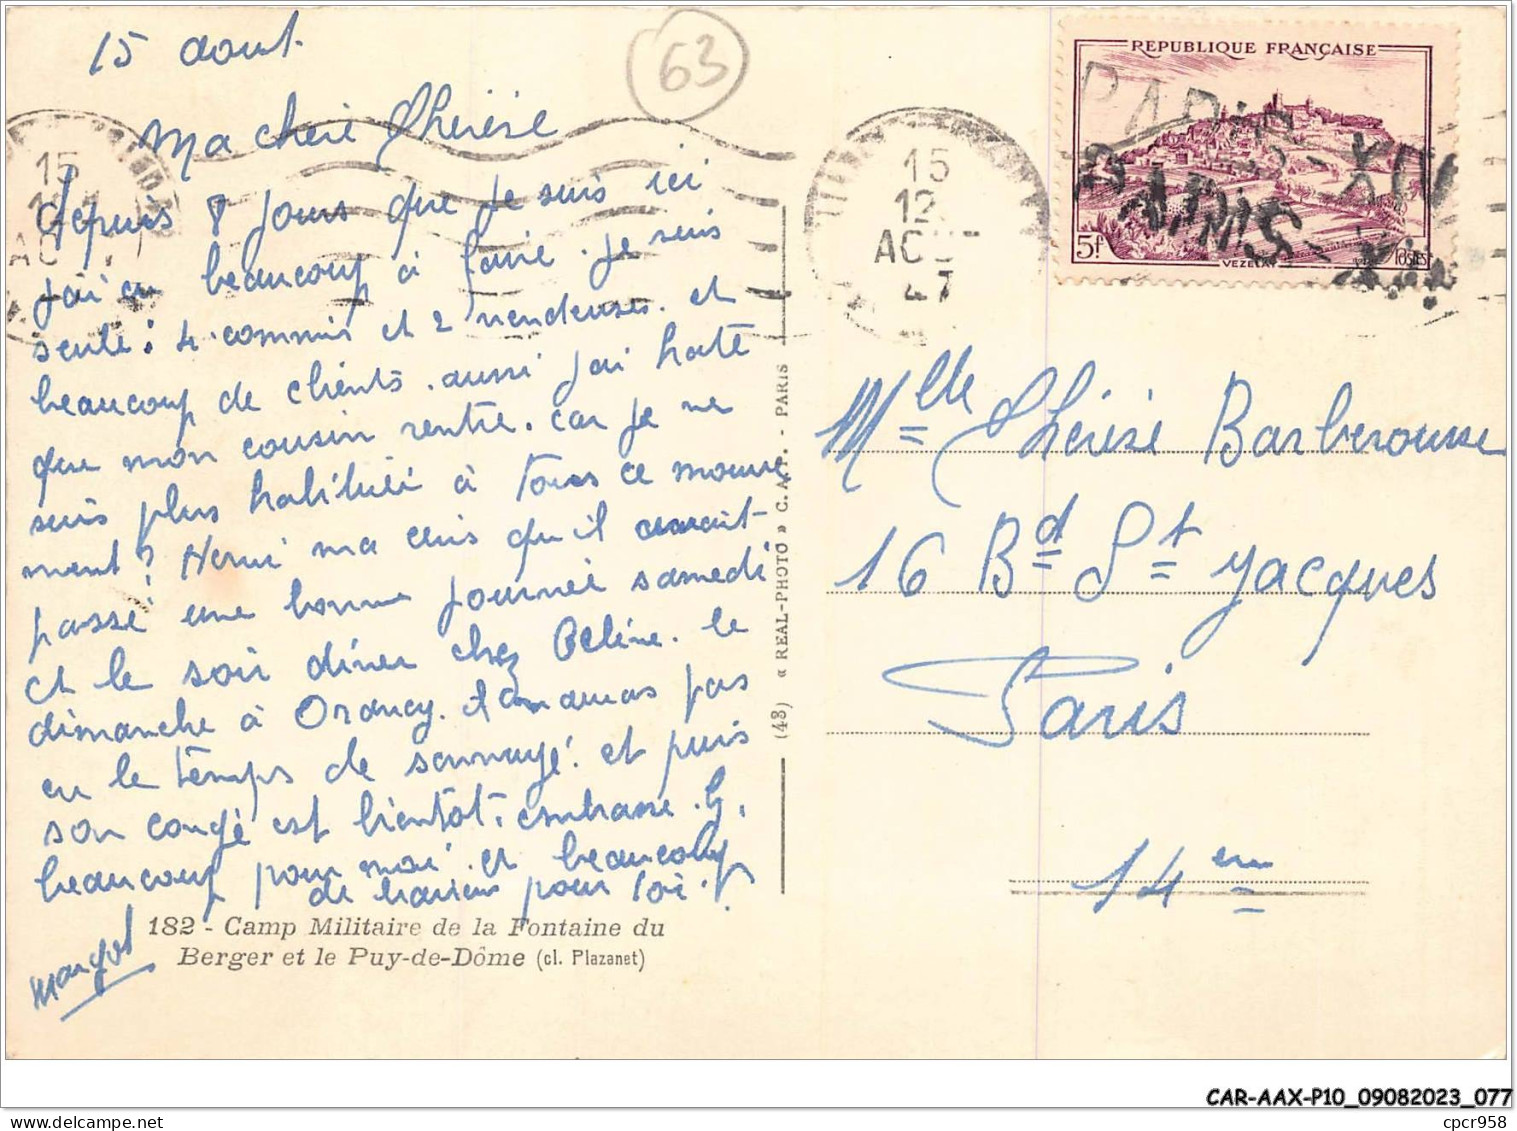 15 aout.
63
Ma chère Thérèse
depuis 8 jours que je suis ici
j'ai eu beaucoup à faire. je suis
seule: 4 commis et 2 vendeuses. et
beaucoup de clients. aussi j'ai hate
que mon cousin rentre. car je ne
suis plus habituée à tous ce mouve
ment? Hervé ma ecris qu'il aurait
passé une bonne journée samedi
et le soir diner chez Céline. le
dimanche à Drancy. tu auras pas
eu le temps de sennuyé! et puis
son congé est bientot. embrasse. G.
beaucoup pour moi. et beaucoup
de baisers pour toi.
Margot
182 - Camp Militaire de la Fontaine du
Berger et le Puy-de-Dôme (cl. Plazanet)
(43) « REAL-PHOTO » C. A. P. - PARIS
15
12
AOUT
47
REPUBLIQUE FRANÇAISE
5f
VEZELAY
POSTES
PARIS
PARIS
Mlle Thérèse Barberousse
16 Bd St Jacques
Paris
14em
CAR-AAX-P10_09082023_077
cpcr958